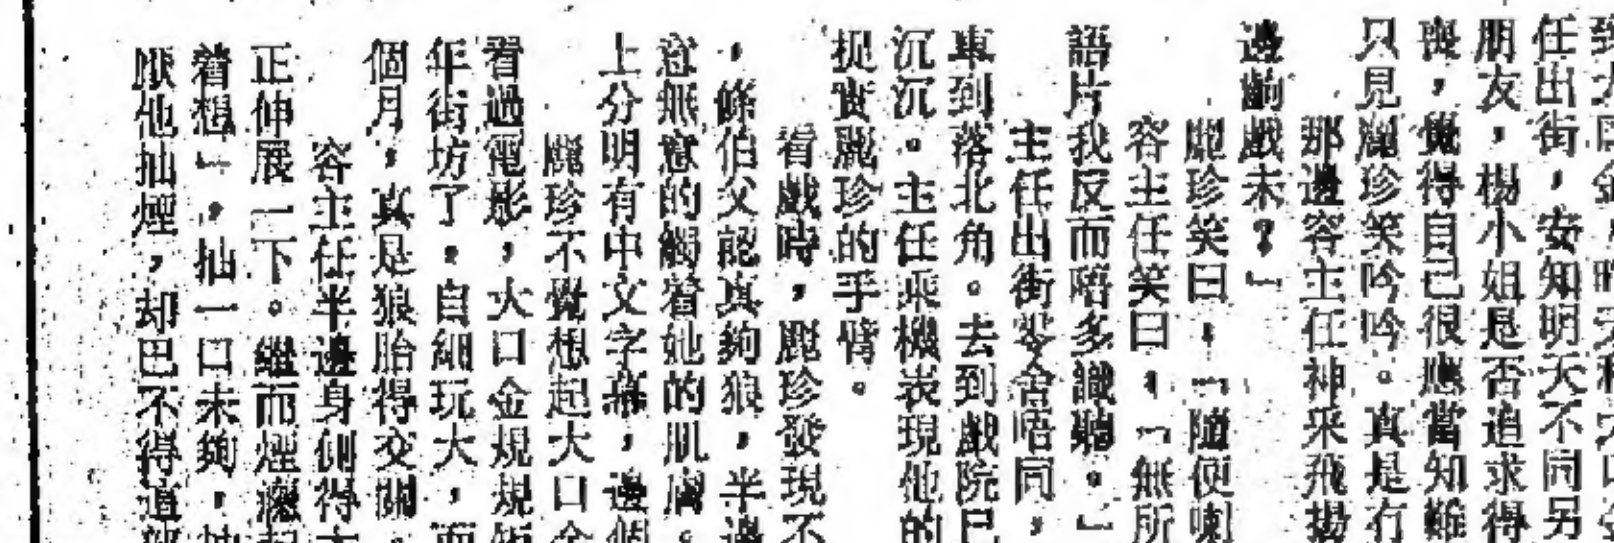 任出街，安知明天不同另
朋友，楊小姐是否追求得
喪，覺得自己很應當知難
只見麗珍笑吟吟。真是冇
那邊容主任神采飛揚
邊齣戲未？」
麗珍笑曰：「隨便喇
容主任笑曰：「無所
語片我反而唔多識聽。」
主任出街零舍唔同，
車到落北角。去到戲院已
沉沉。主任乘機表現他的
捉實麗珍的手臂。
看戲時，麗珍發現不
，條伯父認真夠狼，半邊
意無意的觸着她的肌膚。
上分明有中文字幕，邊個
麗珍不覺想起大口金
看過電影，大口金規規矩
年街坊了，自細玩大，而
個月，真是狼胎得交關。
容主任半邊身側得
正伸展一下。繼而煙癮起
着想」，抽一口未夠，
厭他抽煙，却巴不得這部